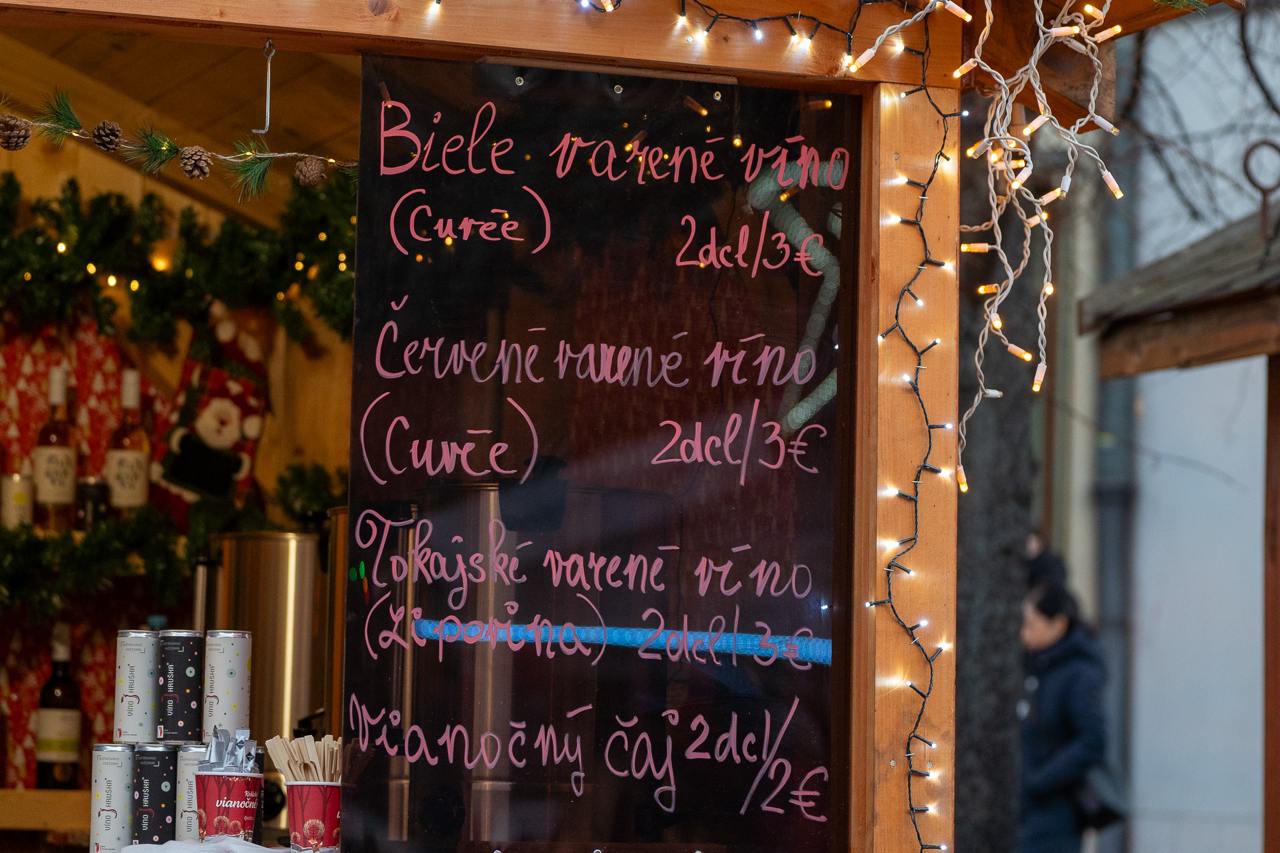 Biele varené víno
(Cuvée) 2dcl/3€
Červené varené víno
(Cuvée) 2dcl/3€
Tokajské varené víno
(Lipovina) 2dcl/3€
Vianočný čaj 2dcl/
2€
VÍNO HRUŠKA
VÍNO HRUŠKA
VÍNO HRUŠKA
VÍNO HRUŠKA
VÍNO HRUŠKA
vianočné